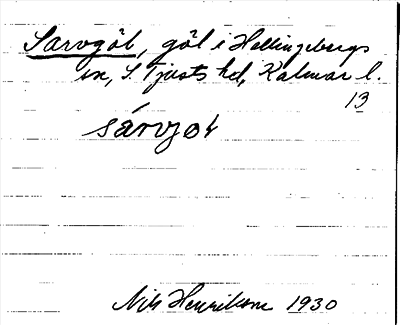 Sarvgöl, göl i Hallingebergs
sn, S Tjusts hd, Kalmar l.
13
sárvjøl
Nils Henrikson 1930